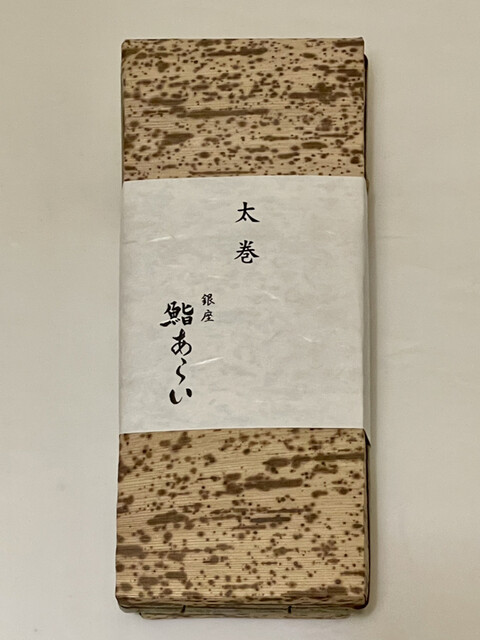 太巻
銀座
鮨あらい